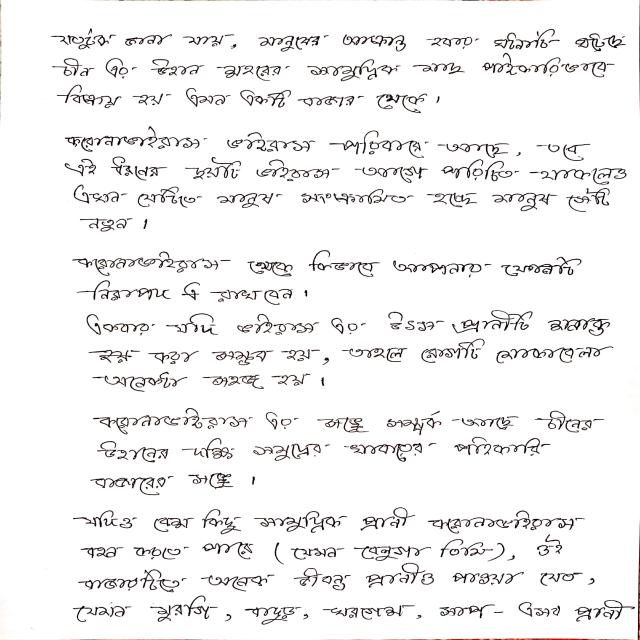 যতটুকু জানা যায়, মানুষের আক্রান্ত হবার ঘটনাটি ঘটেছে
চীন এর উহান শহরের সামুদ্রিক মাছ পাইকারিভাবে
বিক্রয় হয় এমন একটি বাজার থেকে।
করোনাভাইরাস ভাইরাস পরিবারে আছে, তবে
এই ধরনের ছয়টি ভাইরাস আগে পরিচিত থাকলেও
এখন যেটিতে মানুষ সংক্রামিত হচ্ছে মানুষ সেটি
নতুন।
করোনাভাইরাস থেকে কিভাবে আপনার ফোনটি
নিরাপদ এ রাখবেন।
একবার যদি ভাইরাস এর উৎস প্রানীটি সনাক্ত
করা সম্ভব হয়, তাহলে রোগটি মোকাবেলা
অনেকটা সহজ হয়।
করোনাভাইরাস এর সঙ্গে সম্পর্ক আছে চীনের
উহানের দক্ষিণ সমুদ্রের খাবারের পাইকারি
বাজারের সঙ্গে।
যদিও বেশ কিছু সামুদ্রিক প্রানী করোনাভাইরাস
বহন করতে পারে (যেমন বেলুগা তিমি), ওই
বাজারটিতে অনেক জীবন্ত প্রানীও পাওয়া যেত,
যেমন মুরগি, বাদুড়, খরগোশ, সাপ - এসব প্রানী